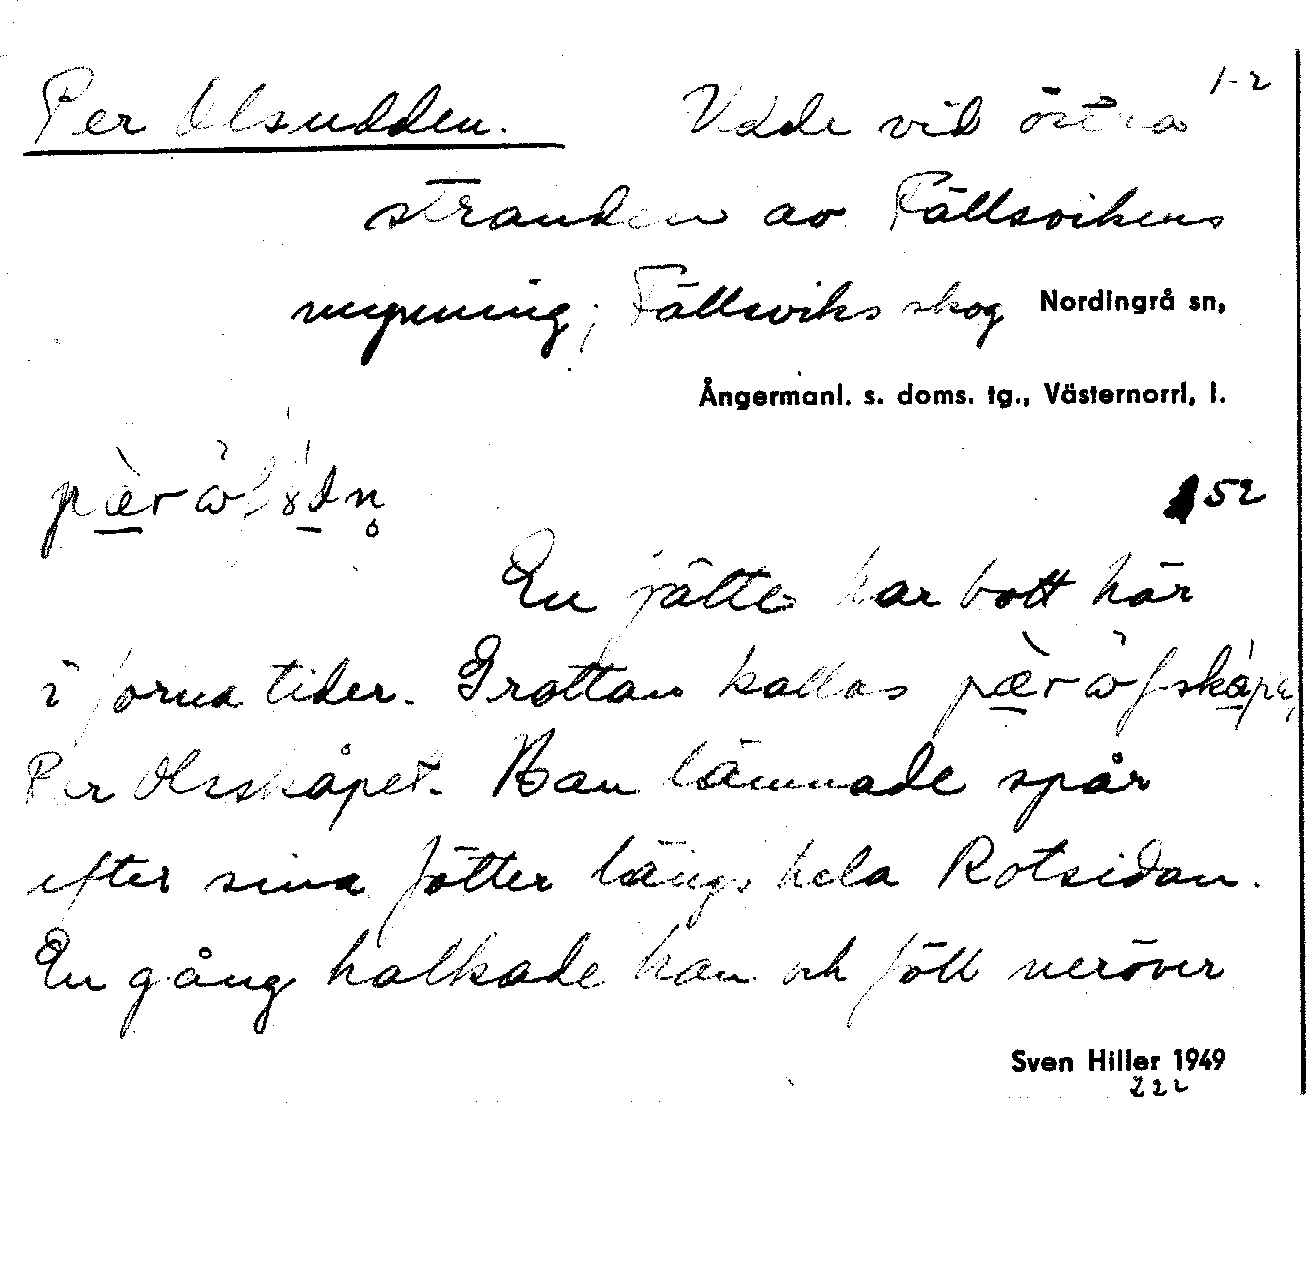 1-2
Per Olsudden. Udde vid östra
stranden av Fällsvikens
mynning; Fällsviks skog Nordingrå sn,
Ångermanl. s. doms. tg., Västernorrl, l.
52
En jätte har bott här
i forna tider. Grottan kallas
Per Olsskåpet. Han lämnade spår
efter sina fötter längs hela Rotsidan.
En gång halkade han och föll neröver
Sven Hiller 1949
222